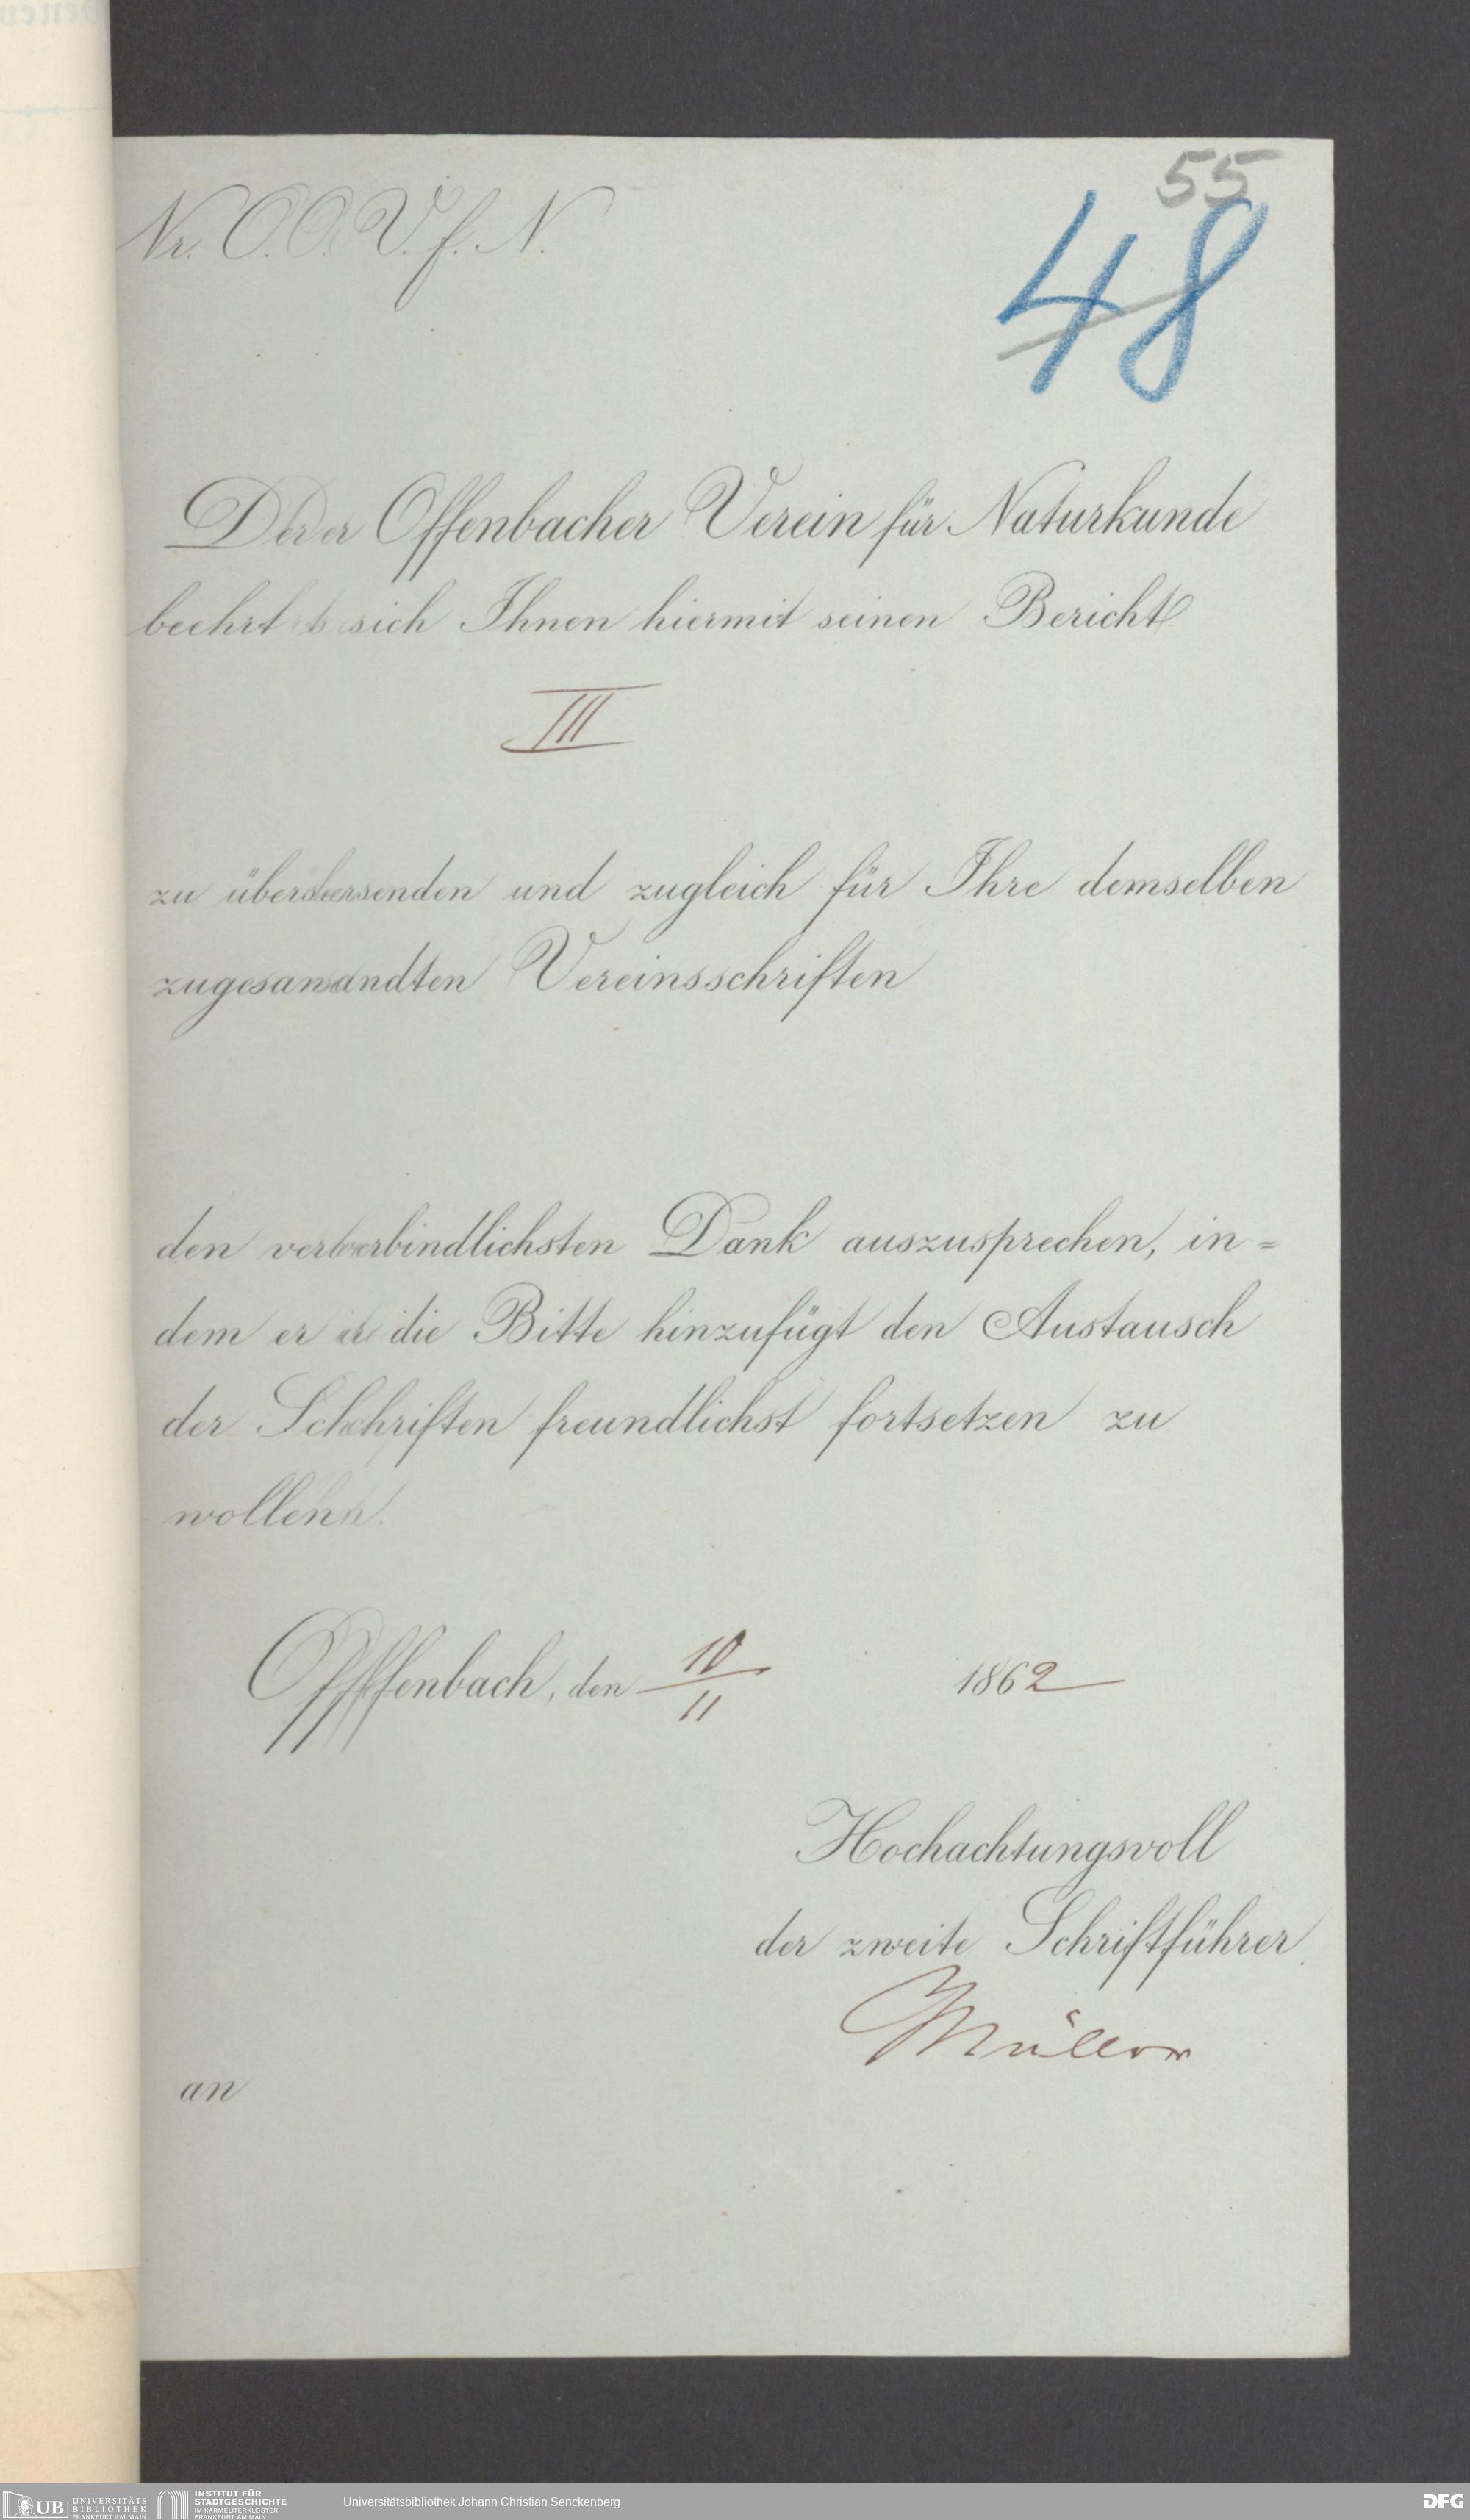 Nr. O. V. f. N.
55
48
Der Offenbacher Verein für Naturkunde
beehrt sich Ihnen hiermit seinen Bericht
III
zu übersenden und zugleich für Ihre demselben
zugesandten Vereinsschriften
den verbindlichsten Dank auszusprechen, in=
dem er die Bitte hinzufügt den Austausch
der Schriften freundlichst fortsetzen zu
wollen.
Offenbach, den 10/11 1862
Hochachtungsvoll
der zweite Schriftführer.
Müller
an
UB UNIVERSITÄTS
BIBLIOTHEK
FRANKFURT AM MAIN
INSTITUT FÜR
STADTGESCHICHTE
IM KARMELITERKLOSTER
FRANKFURT AM MAIN
Universitätsbibliothek Johann Christian Senckenberg
DFG